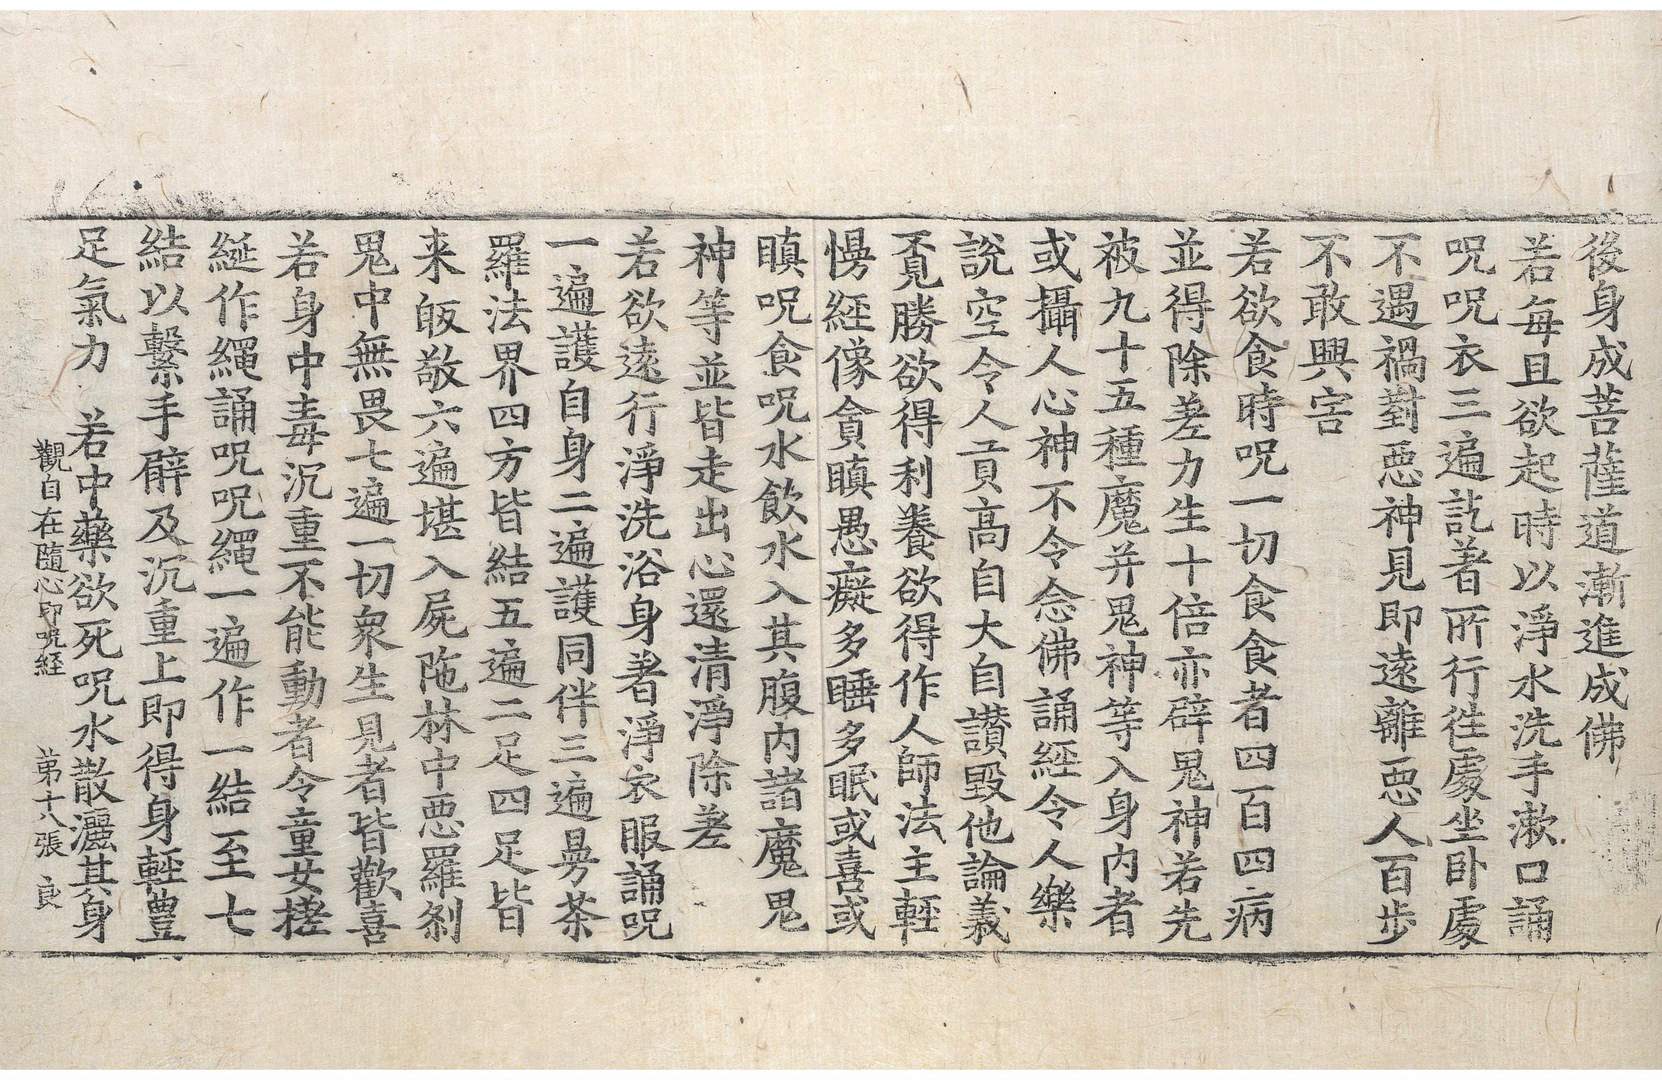 後身成菩薩道漸進成佛
若每旦欲起時以淨水洗手漱口誦
呪呪衣三遍訖著所行徃處坐卧處
不遇禍對惡神見即遠離惡人百步
不敢興害
若欲食時呪一切食食者四百四病
並得除差力生十倍亦辟鬼神若先
被九十五種魔并鬼神等入身內者
或攝人心神不令念佛誦經令人樂
說空令人貢高自大自讃毀他論義
覓勝欲得利養欲得作人師法主輕
慢經像貪瞋愚癡多睡多眠或喜或
瞋呪食呪水飲水入其腹內諸魔鬼
神等並皆走出心還清淨除差
若欲遠行淨洗浴身著淨衣服誦呪
一遍護自身二遍護同伴三遍曑茶
羅法界四方皆結五遍二足四足皆
来皈敬六遍堪入屍陁林中惡羅剎
鬼中無畏七遍一切衆生見者皆歡喜
若身中毒沉重不能動者令童女搓
綖作繩誦呪呪繩一遍作一結至七
結以繫手臂及沉重上即得身輕豊
足氣力 若中藥欲死呪水散灑其身
觀自在隨心印呪経 第十八張 良